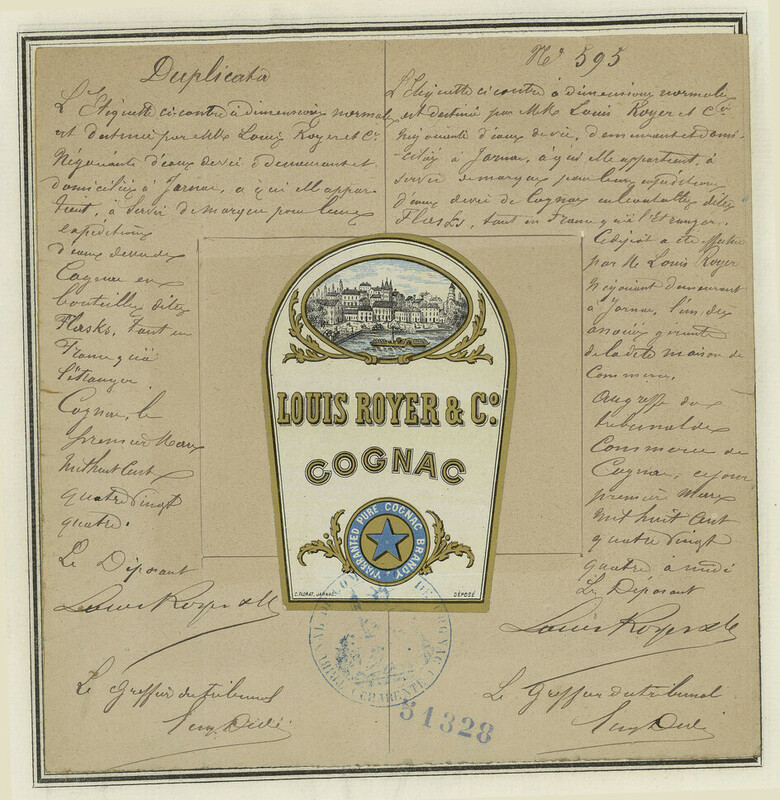 Duplicata
L'Etiquette ci-contre à dimensions normales
est destinée par MM. Louis Royer et Cie
Négociants d'eaux de vie, demeurant et
domiciliés à Jarnac, à qui elle appar-
tient, à servir de marque pour leurs
expéditions
d'eaux de vie de
Cognac en
bouteilles dites
Flasks, tant en
France qu'à
l'étranger.
Cognac, le
premier Mars
mil huit cent
quatre vingt
quatre.
Le Déposant
Louis Royer & Cie
Le Greffier du tribunal
N° 595
L'Etiquette ci-contre à dimensions normales
est destinée par MM. Louis Royer et Cie
Négociants d'eaux de vie, demeurant et domi-
ciliés à Jarnac, à qui elle appartient, à
servir de marque pour leurs expéditions
d'eaux de vie de Cognac en bouteilles dites
Flasks, tant en France qu'à l'Etranger.
Ce dépôt a été effectué
par M. Louis Royer
négociant demeurant
à Jarnac, l'un des
associés gérants
de la dite maison de
Commerce,
au greffe du
tribunal de
Commerce de
Cognac, ce jour
premier Mars
mil huit cent
quatre vingt
quatre à midi
Le Déposant
Louis Royer & Cie
Le Greffier du tribunal
LOUIS ROYER & Cº.
COGNAC
WARRANTED PURE COGNAC BRANDY
C. FLORAT, JARNAC.
DÉPOSÉ
TRIBUNAL DE COMMERCE DE COGNAC
(CHARENTE)
51328